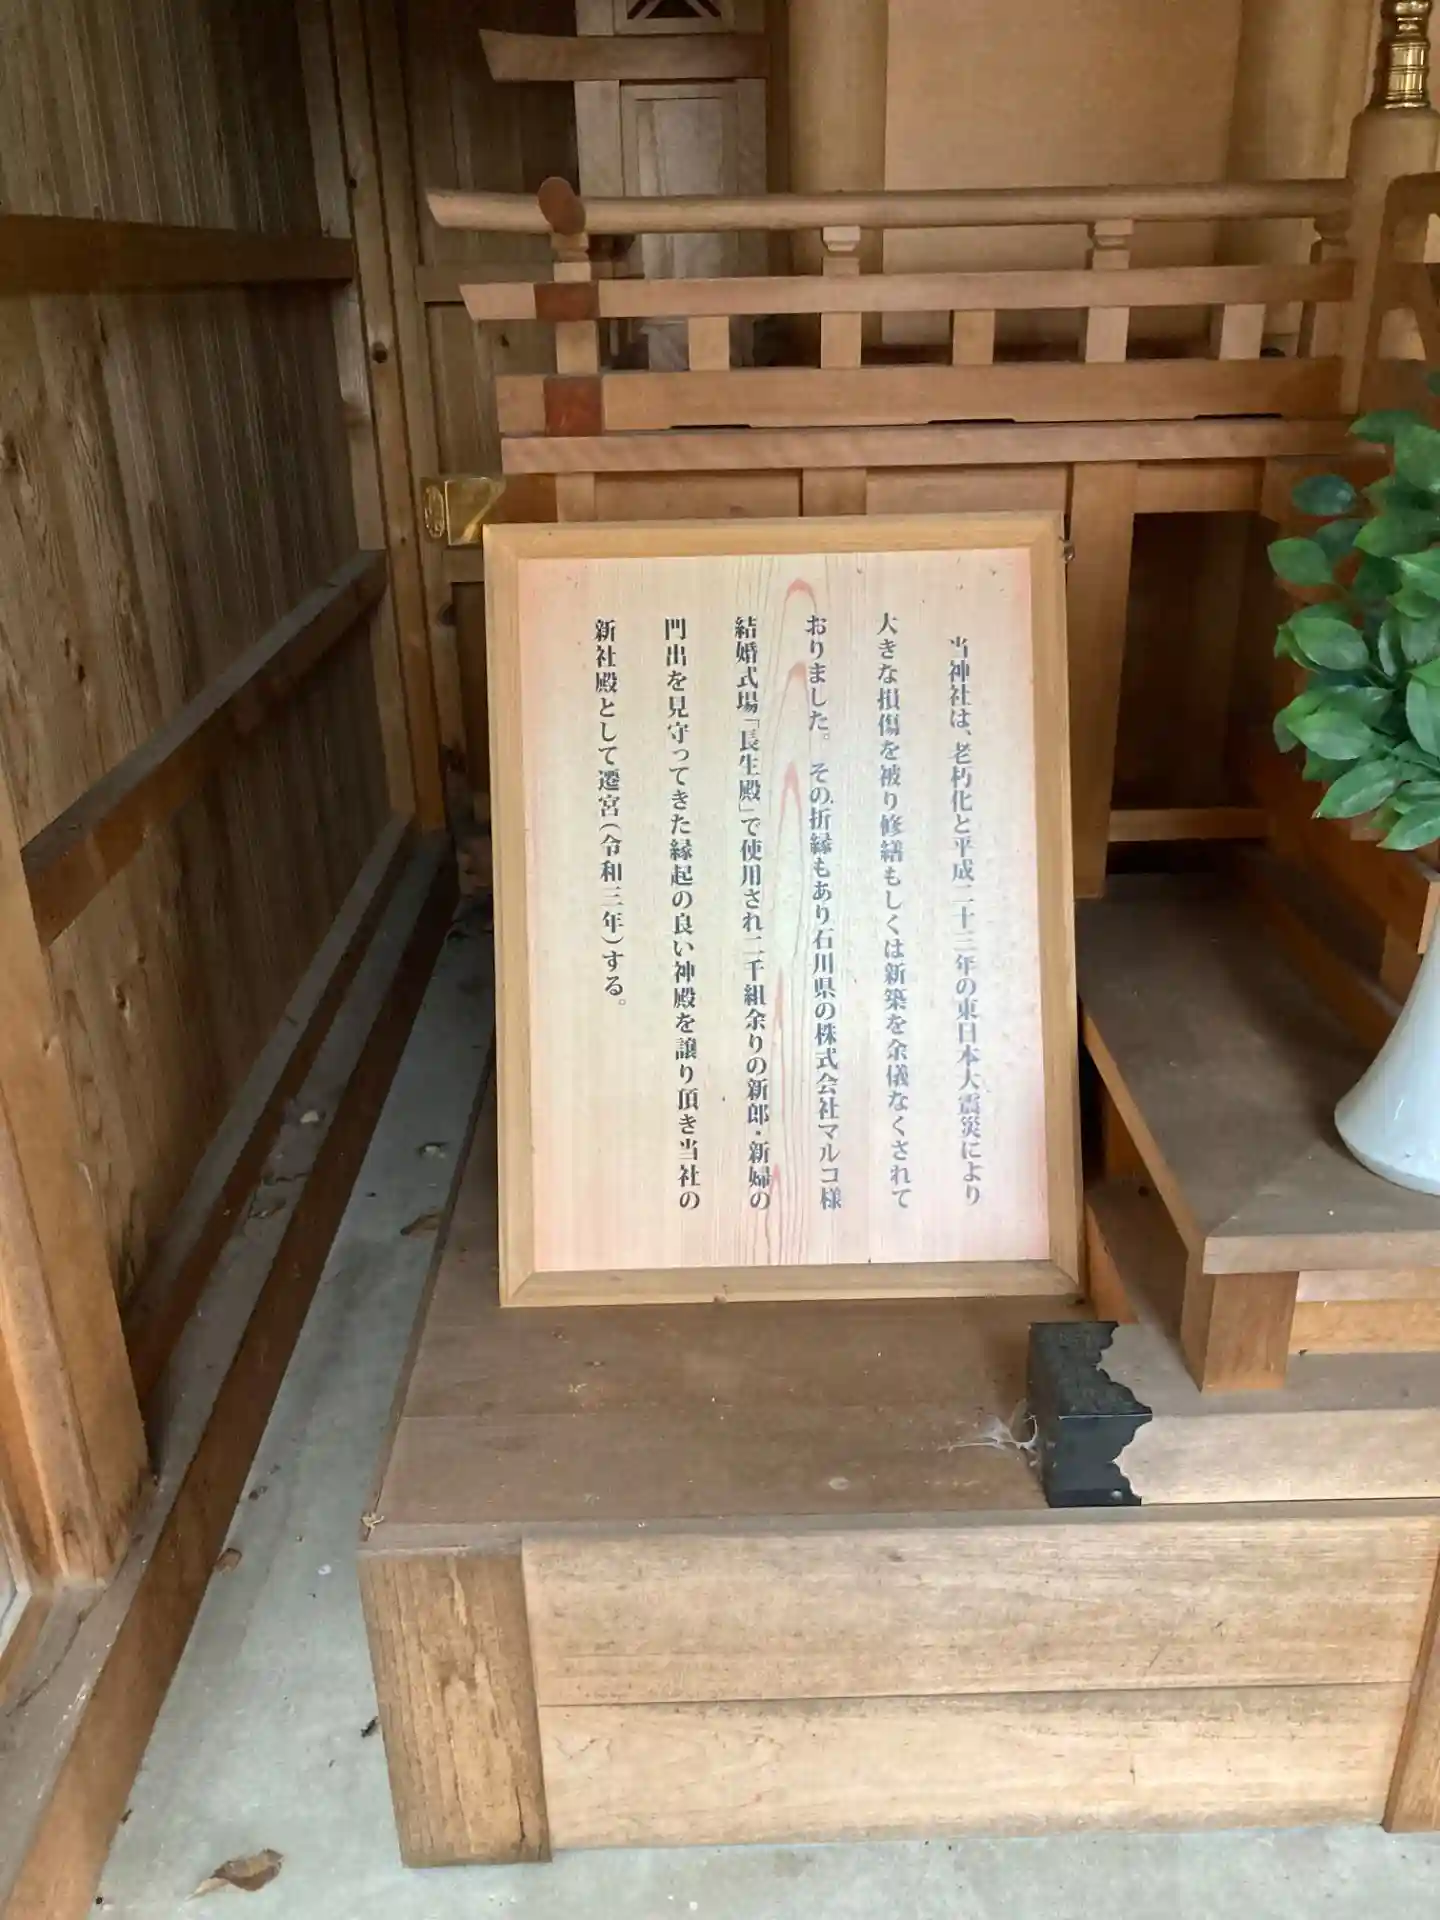 当神社は、老朽化と平成二十三年の東日本大震災により
大きな損傷を被り修繕もしくは新築を余儀なくされて
おりました。その折縁もあり石川県の株式会社マルコ様
結婚式場「長生殿」で使用され二千組余りの新郎・新婦の
門出を見守ってきた縁起の良い神殿を譲り頂き当社の
新社殿として遷宮（令和三年）する。